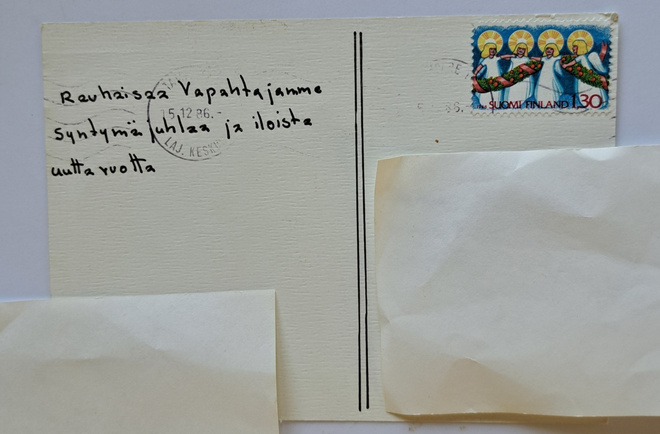 Rauhaisaa Vapahtajamme
syntymäjuhlaa ja iloista
uutta vuotta
5.12.86.-
LAJ. KESK
86.
SUOMI FINLAND 130